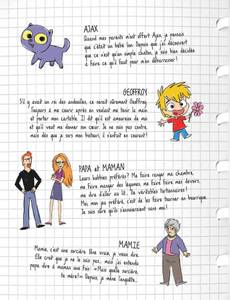 AJAX
Quand mes parents m'ont offert Ajax, je pensais
que c'était un bébé lion. Depuis que j'ai découvert
que ce n'est qu'un simple chaton, je suis bien décidée
à faire ce qu'il faut pour m'en débarrasser !
GEOFFROY
S'il y avait un roi des andouilles, ce serait sûrement Geoffroy.
Toujours à me courir après en voulant me tenir la main
et porter mon cartable. Il dit qu'il est amoureux de moi
et qu'il veut me donner son cœur. Je ne suis pas contre,
mais dès que je sors mes ciseaux, il s'enfuit en courant.
PAPA et MAMAN
Leurs hobbies préférés ? Me faire ranger ma chambre,
me faire manger des légumes, me faire faire mes devoirs,
me dire d'aller au lit... De véritables tortionnaires !
Moi, mon jeu préféré, c'est de les faire tourner en bourrique.
Je suis sûre qu'ils s'ennuieraient sans moi !
MAMIE
Mamie, c'est une sorcière. Une vraie, je vous le dis.
Elle croit que je ne le sais pas, mais j'ai entendu
papa dire à maman une fois : « Mais quelle sorcière,
ta mère ! » Depuis, je mène l'enquête.